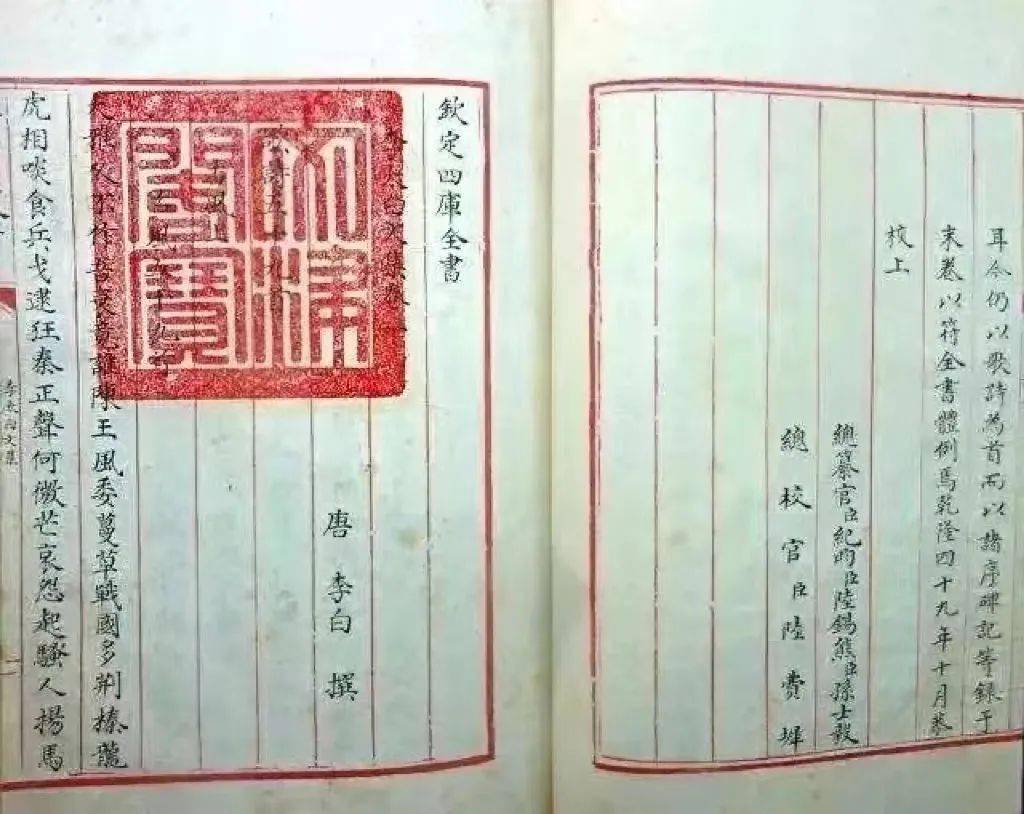 耳今仍以歌詩為首而以諸序碑記等録于
末卷以符全書體例焉乾隆四十九年十月恭
校上
總纂官臣紀昀臣陸錫熊臣孫士毅
總校官臣陸費墀
欽定四庫全書
太白文集卷
唐 李白 撰
詩五十九首
大雅久不作吾衰竟誰陳王風委蔓草戰國多荆榛龍
虎相啖食兵戈逮狂秦正聲何微茫哀怨起騷人揚馬
文津閣寶
李太白文集